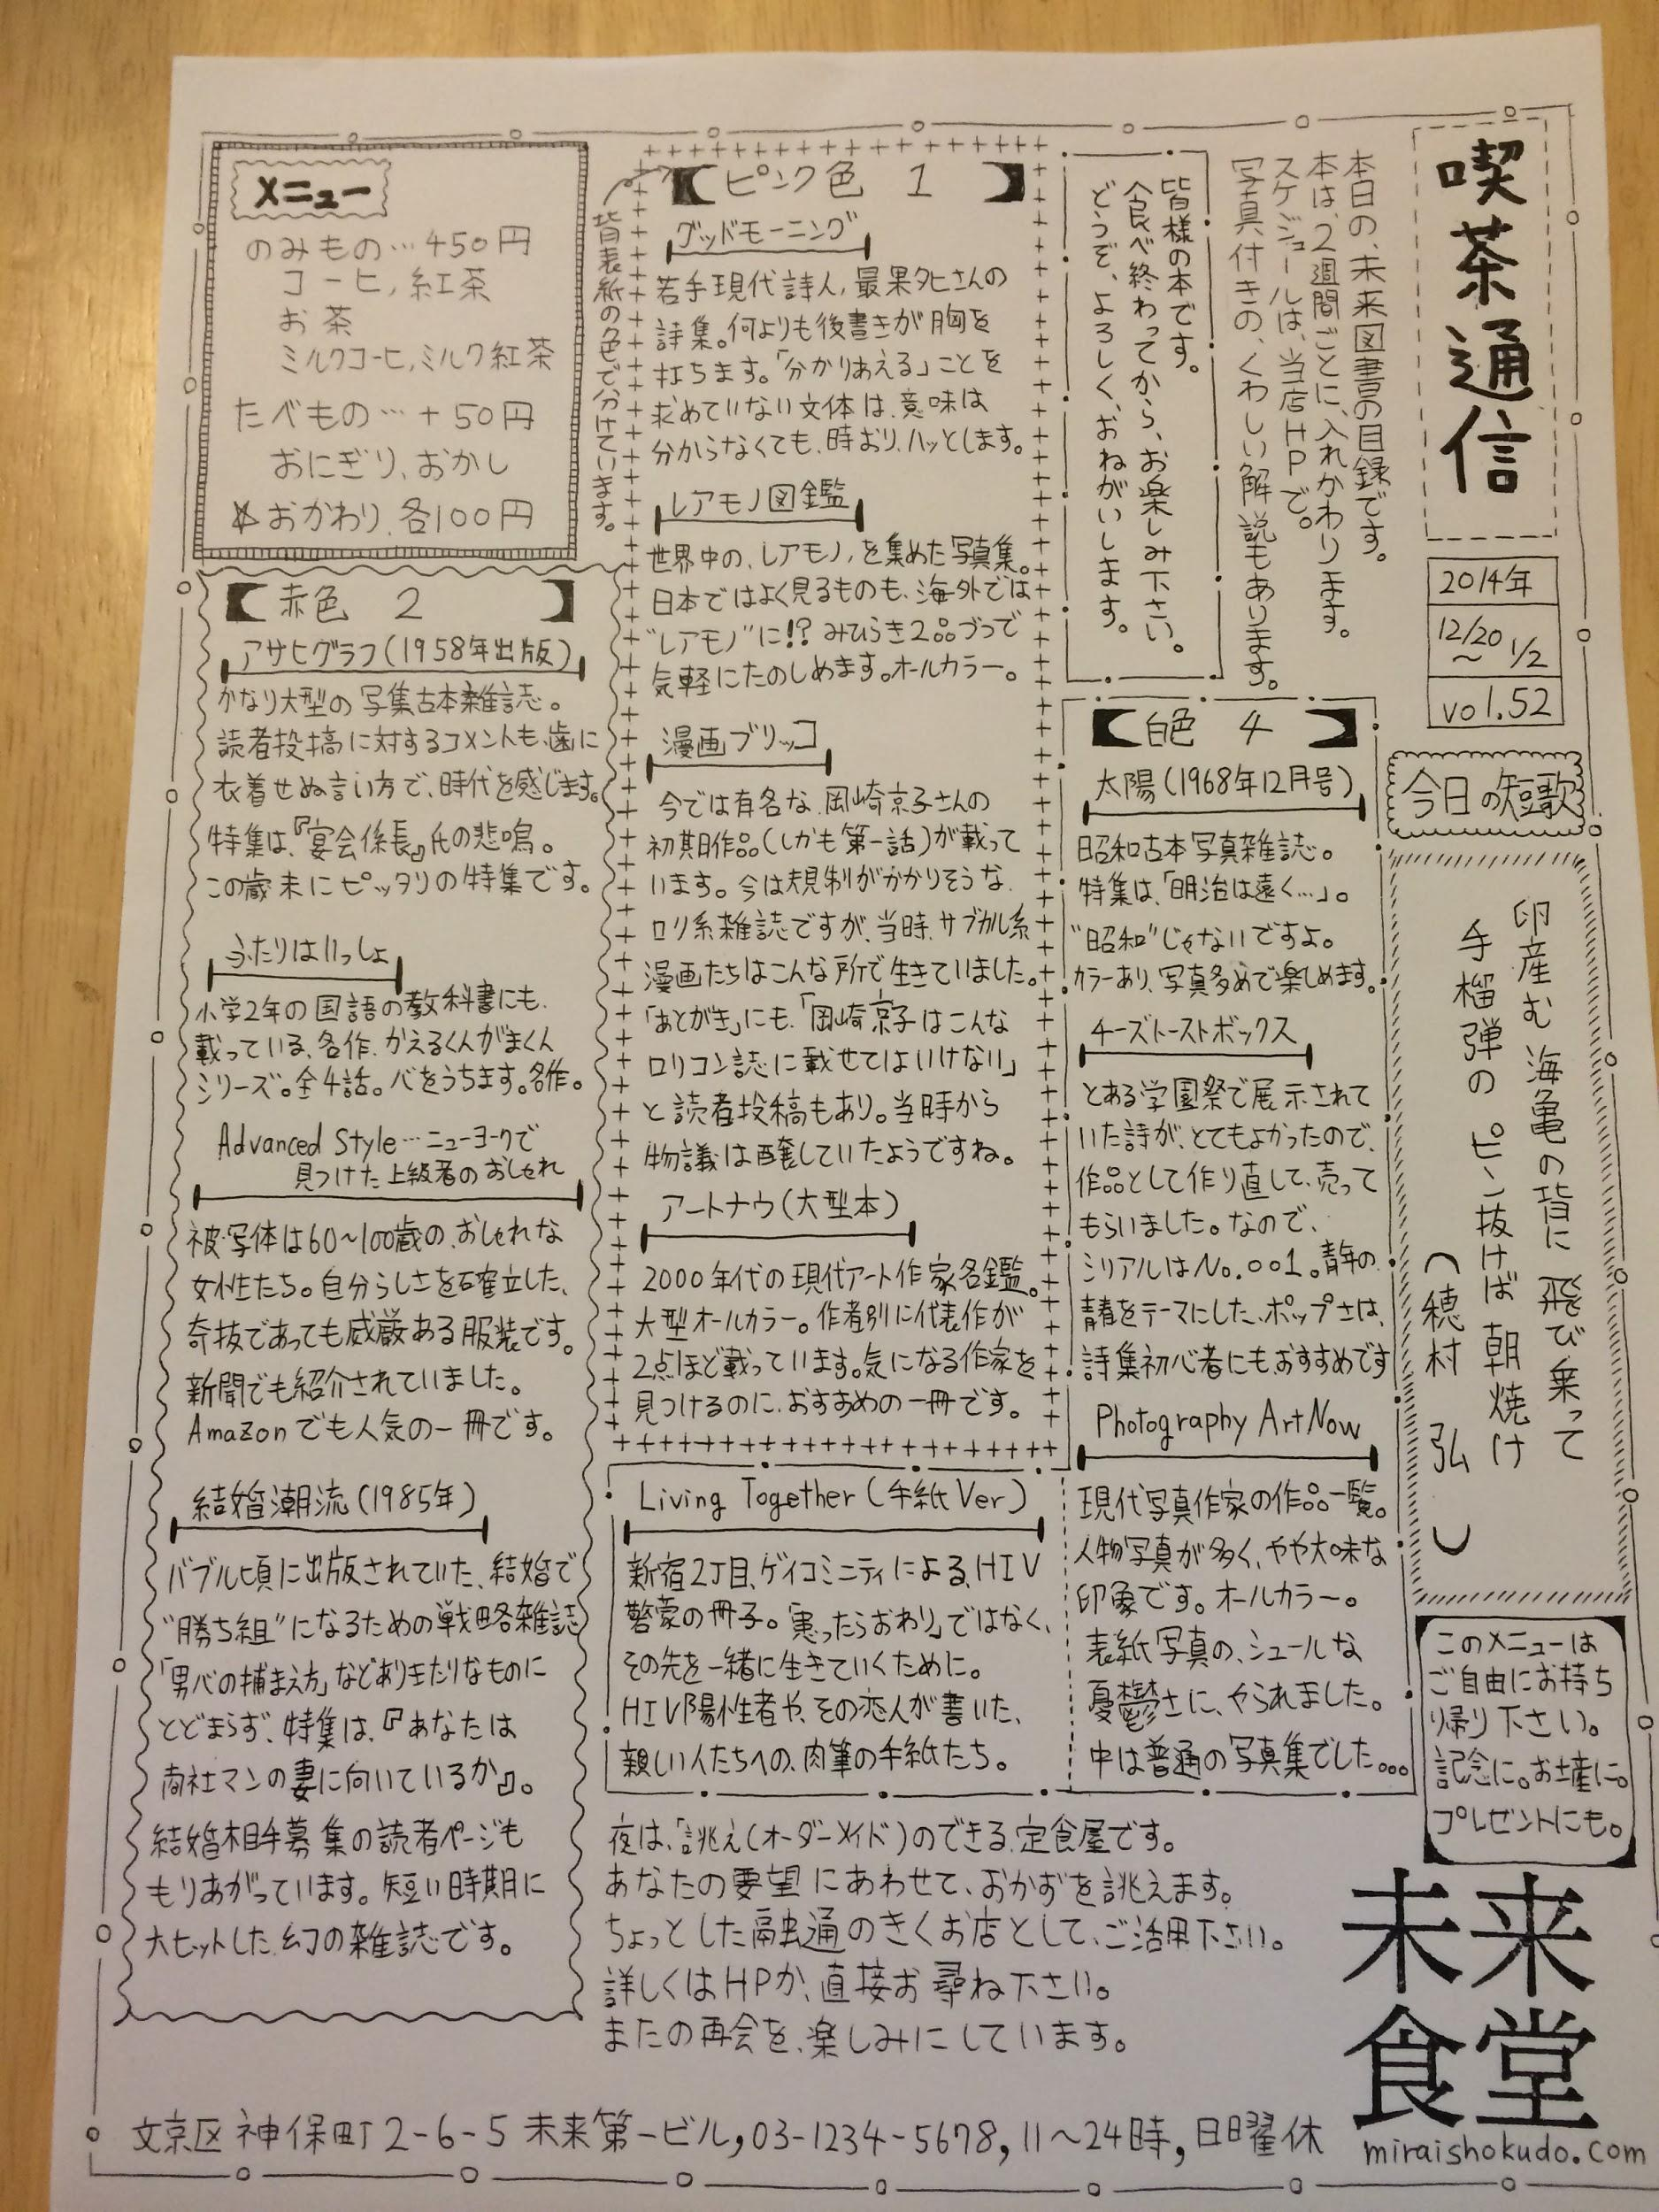 喫茶通信
2014年
12/20
～1/2
vol.52
本日の、未来図書の目録です。
本は、2週間ごとに、入れかわります。
スケジュールは、当店HPで。
写真付きの、くわしい解説もあります。
皆様の本です。
食べ終わってから、お楽しみ下さい。
どうぞ、よろしく、おねがいします。
今日の短歌
卵産む海亀の背に飛び乗って
手榴弾のピン抜けば朝焼け
（穂村 弘）
このメニューは
ご自由にお持ち
帰り下さい。
記念に。お土産に。
プレゼントにも。
メニュー
のみもの…450円
コーヒ,紅茶
お茶
ミルクコーヒ,ミルク紅茶
たべもの…+50円
おにぎり、おかし
☆おかわり、各100円
背表紙の色で分けています。
【ピンク色 1】
グッドモーニング
若手現代詩人,最果タヒさんの
詩集。何よりも後書きが胸を
打ちます。「分かりあえる」ことを
求めていない文体は、意味は
分からなくても、時おり、ハッとします。
レアモノ図鑑
世界中の、レアモノ,を集めた写真集。
日本ではよく見るものも、海外では
“レアモノ”に!?みひらき2品づつで
気軽にたのしめます。オールカラー。
漫画ブリッコ
今では有名な、岡崎京子さんの
初期作品(しかも第一話)が載って
います。今は規制がかかりそうな、
ロリ系雑誌ですが、当時、サブカル系
漫画たちはこんな所で生きていました。
「あとがき」にも、「岡崎京子はこんな
ロリコン誌に載せてはいけない」
と読者投稿もあり。当時から
物議は醸していたようですね。
アートナウ(大型本)
2000年代の現代アート作家名鑑。
大型オールカラー。作者別に代表作が
2点ほど載っています。気になる作家を
見つけるのに、おすすめの一冊です。
【赤色 2】
アサヒグラフ(1958年出版)
かなり大型の写集古本雑誌。
読者投稿に対するコメントも、歯に
衣着せぬ言い方で、時代を感じます。
特集は、『宴会係長』氏の悲鳴。
この歳末にピッタリの特集です。
ふたりはいっしょ
小学2年の国語の教科書にも、
載っている、名作、かえるくんがまくん
シリーズ。全4話。心をうちます。名作。
Advanced Style…ニューヨークで
見つけた上級者のおしゃれ
被写体は60〜100歳の、おしゃれな
女性たち。自分らしさを確立した、
奇抜であっても威厳ある服装です。
新聞でも紹介されていました。
Amazonでも人気の一冊です。
結婚潮流(1985年)
バブル頃に出版されていた、結婚で
“勝ち組”になるための戦略雑誌
「男心の捕まえ方」などありきたりなものに
とどまらず、特集は、『あなたは
商社マンの妻に向いているか』。
結婚相手募集の読者ページも
もりあがっています。短い時期に
大ヒットした、幻の雑誌です。
【白色 4】
太陽(1968年12月号)
昭和古本写真雑誌。
特集は、「明治は遠く…」。
“昭和”じゃないですよ。
カラーあり、写真多めで楽しめます。
チーズトーストボックス
とある学園祭で展示されて
いた詩が、とてもよかったので、
作品として作り直して、売って
もらいました。なので、
シリアルはNo.001。青年の、
青春をテーマにした、ポップさは、
詩集初心者にもおすすめです
Photography Art Now
現代写真作家の作品一覧。
人物写真が多く、やや大味な
印象です。オールカラー。
表紙写真の、シュールな
憂鬱さに、やられました。
中は普通の写真集でした...
Living Together(手紙Ver)
新宿2丁目、ゲイコミニティによる、HIV
啓蒙の冊子。「患ったらおわり」ではなく、
その先を一緒に生きていくために。
HIV陽性者や、その恋人が書いた、
親しい人たちへの、肉筆の手紙たち。
夜は、「誂え(オーダーメイド)のできる、定食屋です。
あなたの要望にあわせて、おかずを誂えます。
ちょっとした融通のきくお店として、ご活用下さい。
詳しくはHPか、直接お尋ね下さい。
またの再会を、楽しみにしています。
未来
食堂
miraishokudo.com
文京区神保町2-6-5 未来第一ビル,03-1234-5678,11〜24時,日曜休